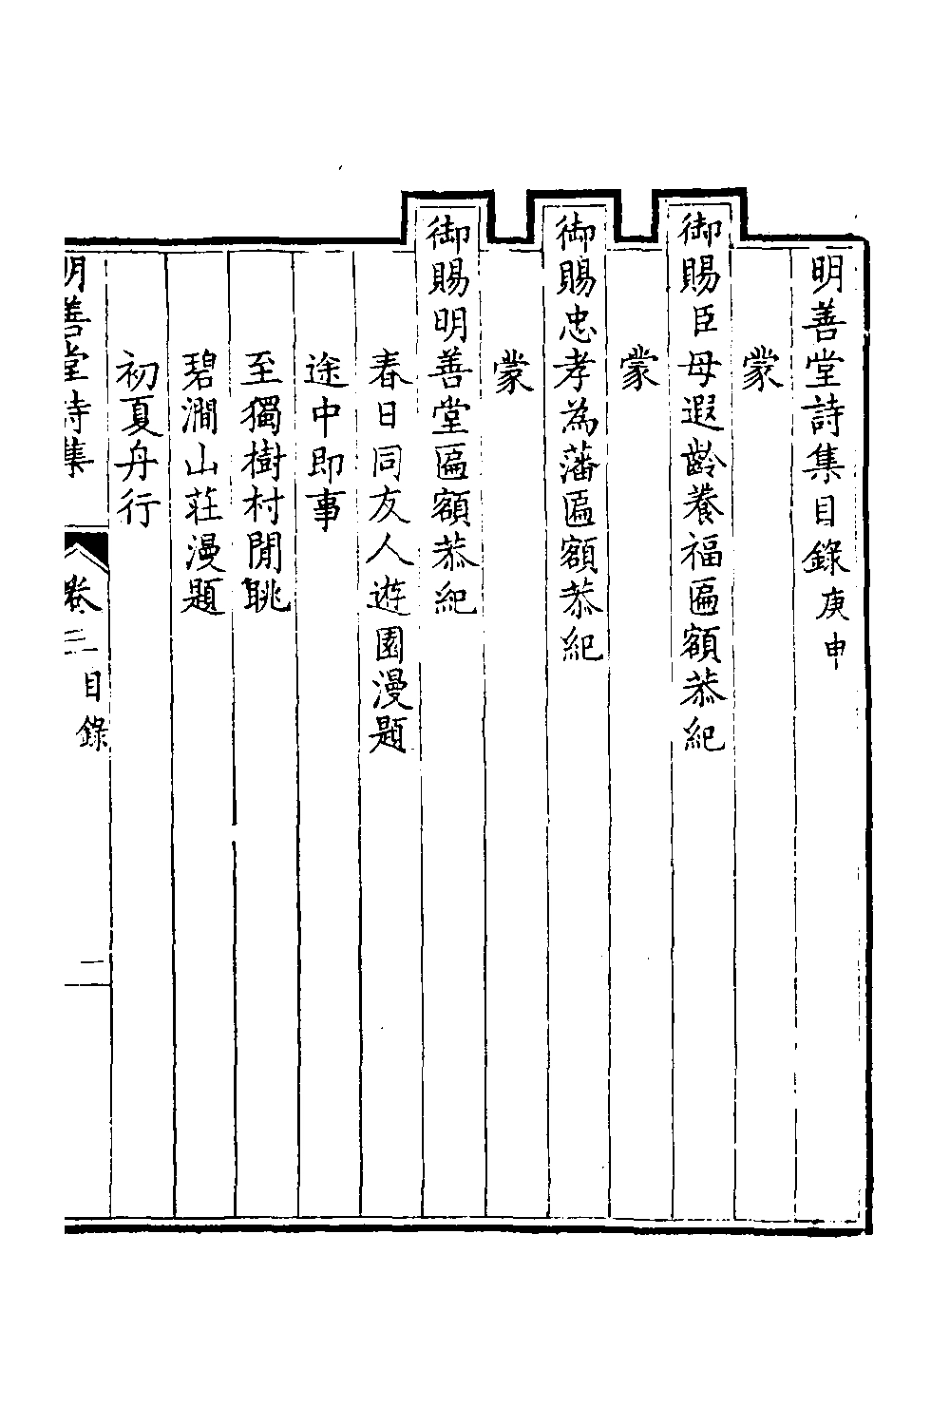 明善堂詩集目錄庚申
蒙
御賜臣母遐齡養福匾額恭紀
蒙
御賜忠孝為藩匾額恭紀
蒙
御賜明善堂匾額恭紀
春日同友人遊園漫題
途中即事
至獨樹村閒眺
碧澗山莊漫題
初夏舟行
明善堂詩集 卷三 目錄 一